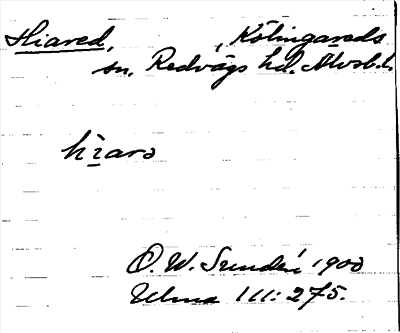 Hiared, , Kölingareds
sn. Redvägs hd. Älvsb.l.
hìarə
O. W. Sundén 1900
Ulma 111:275.